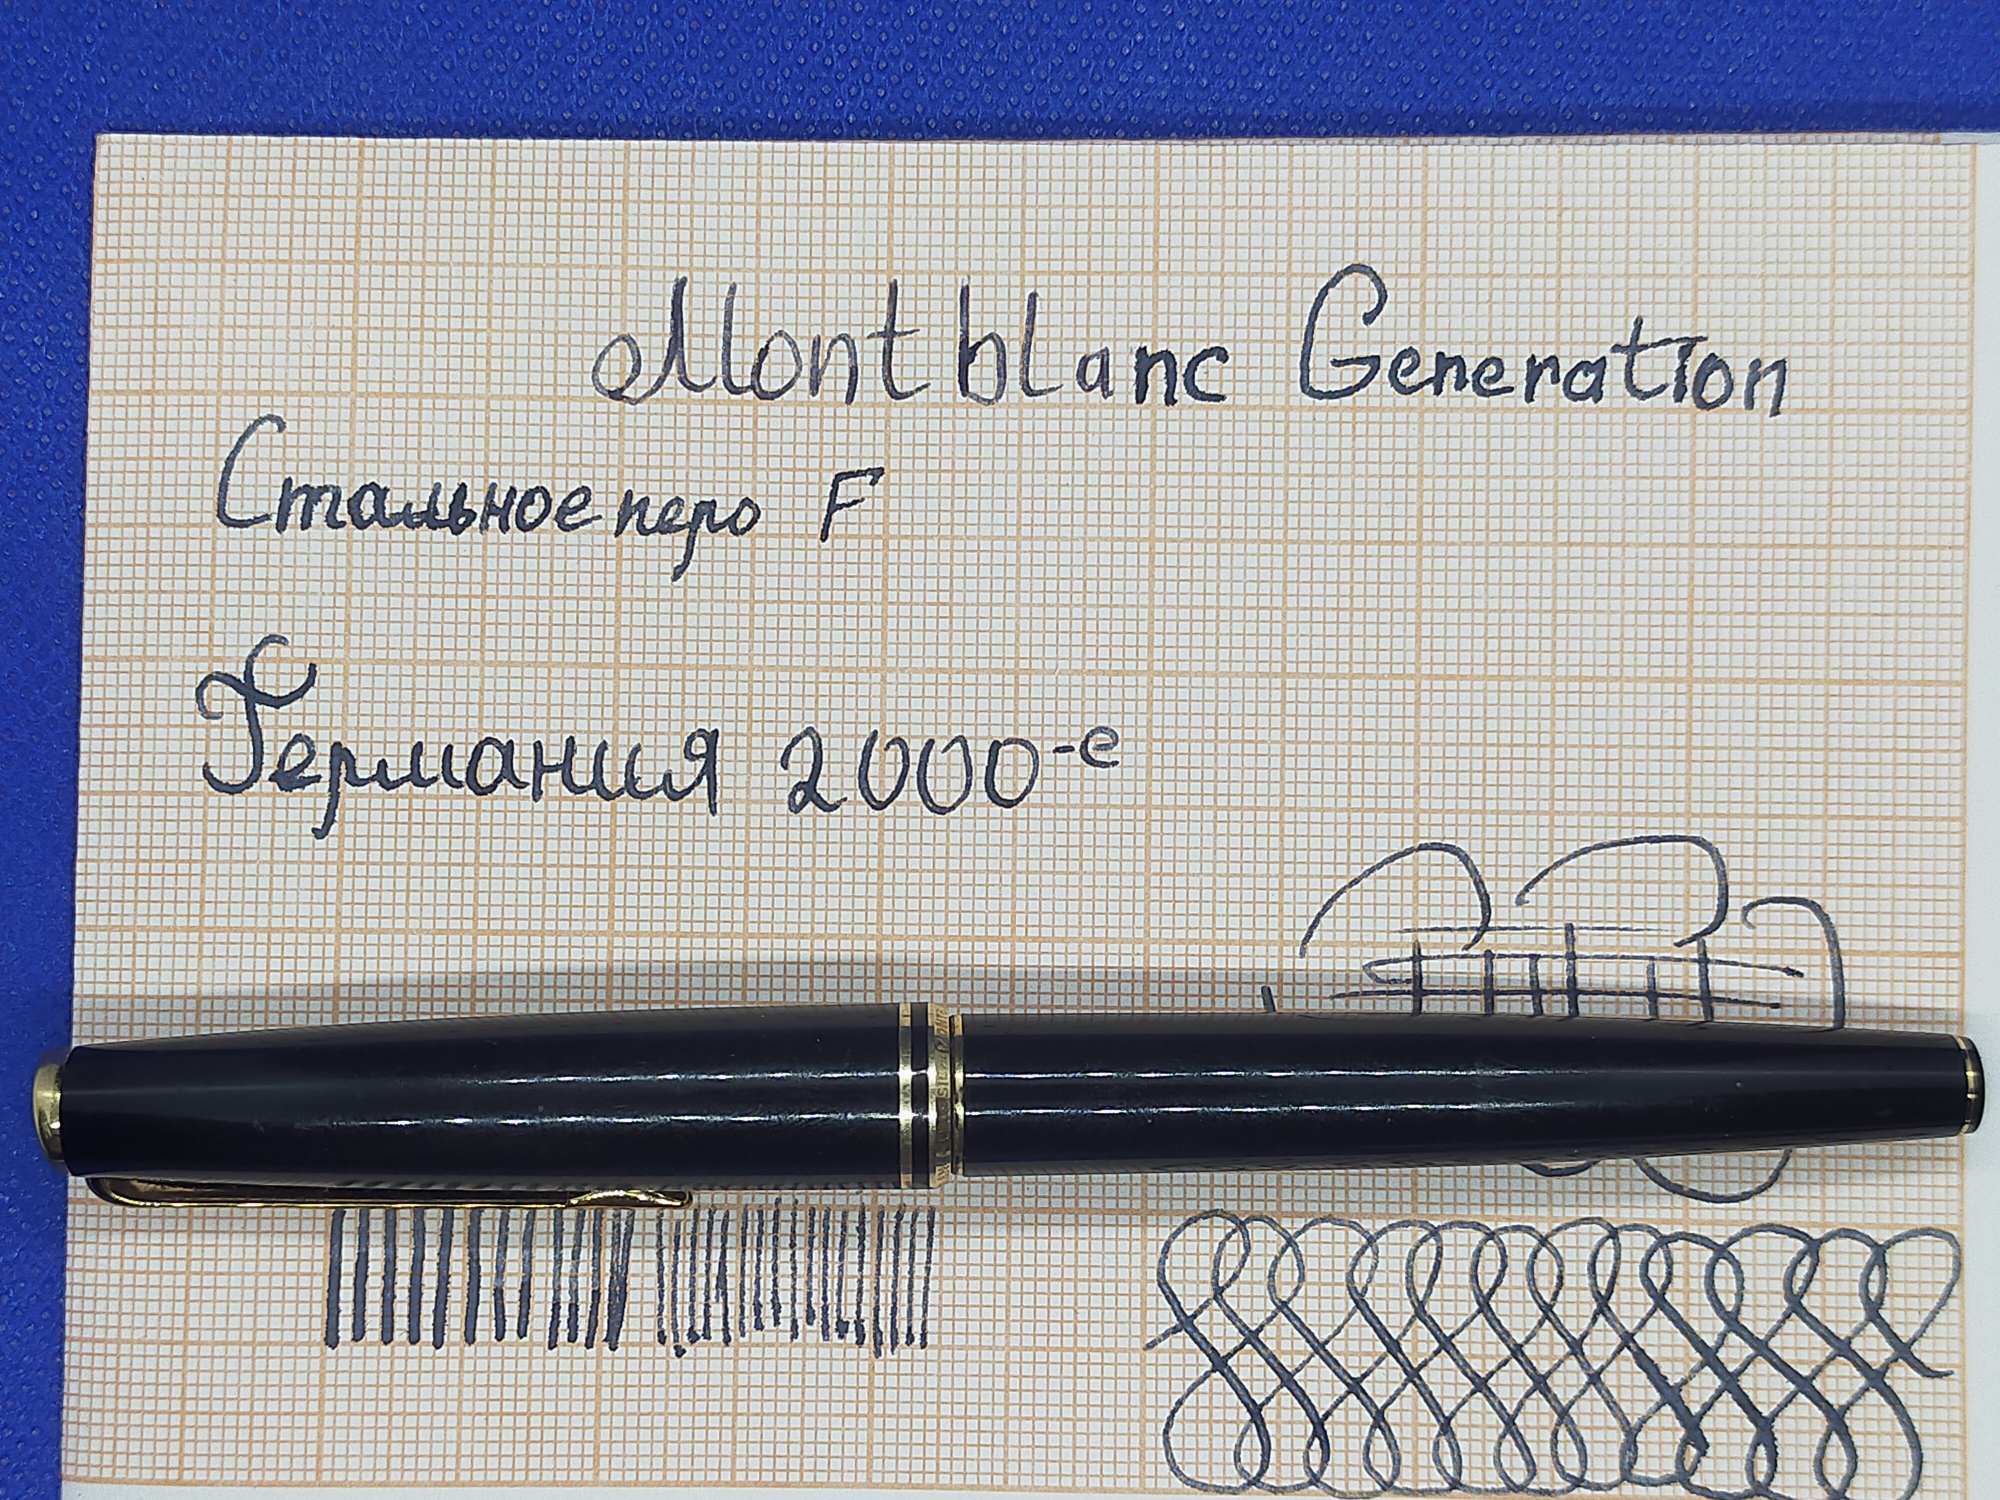 Montblanc Generation
Стальное перо F
Германия 2000-е